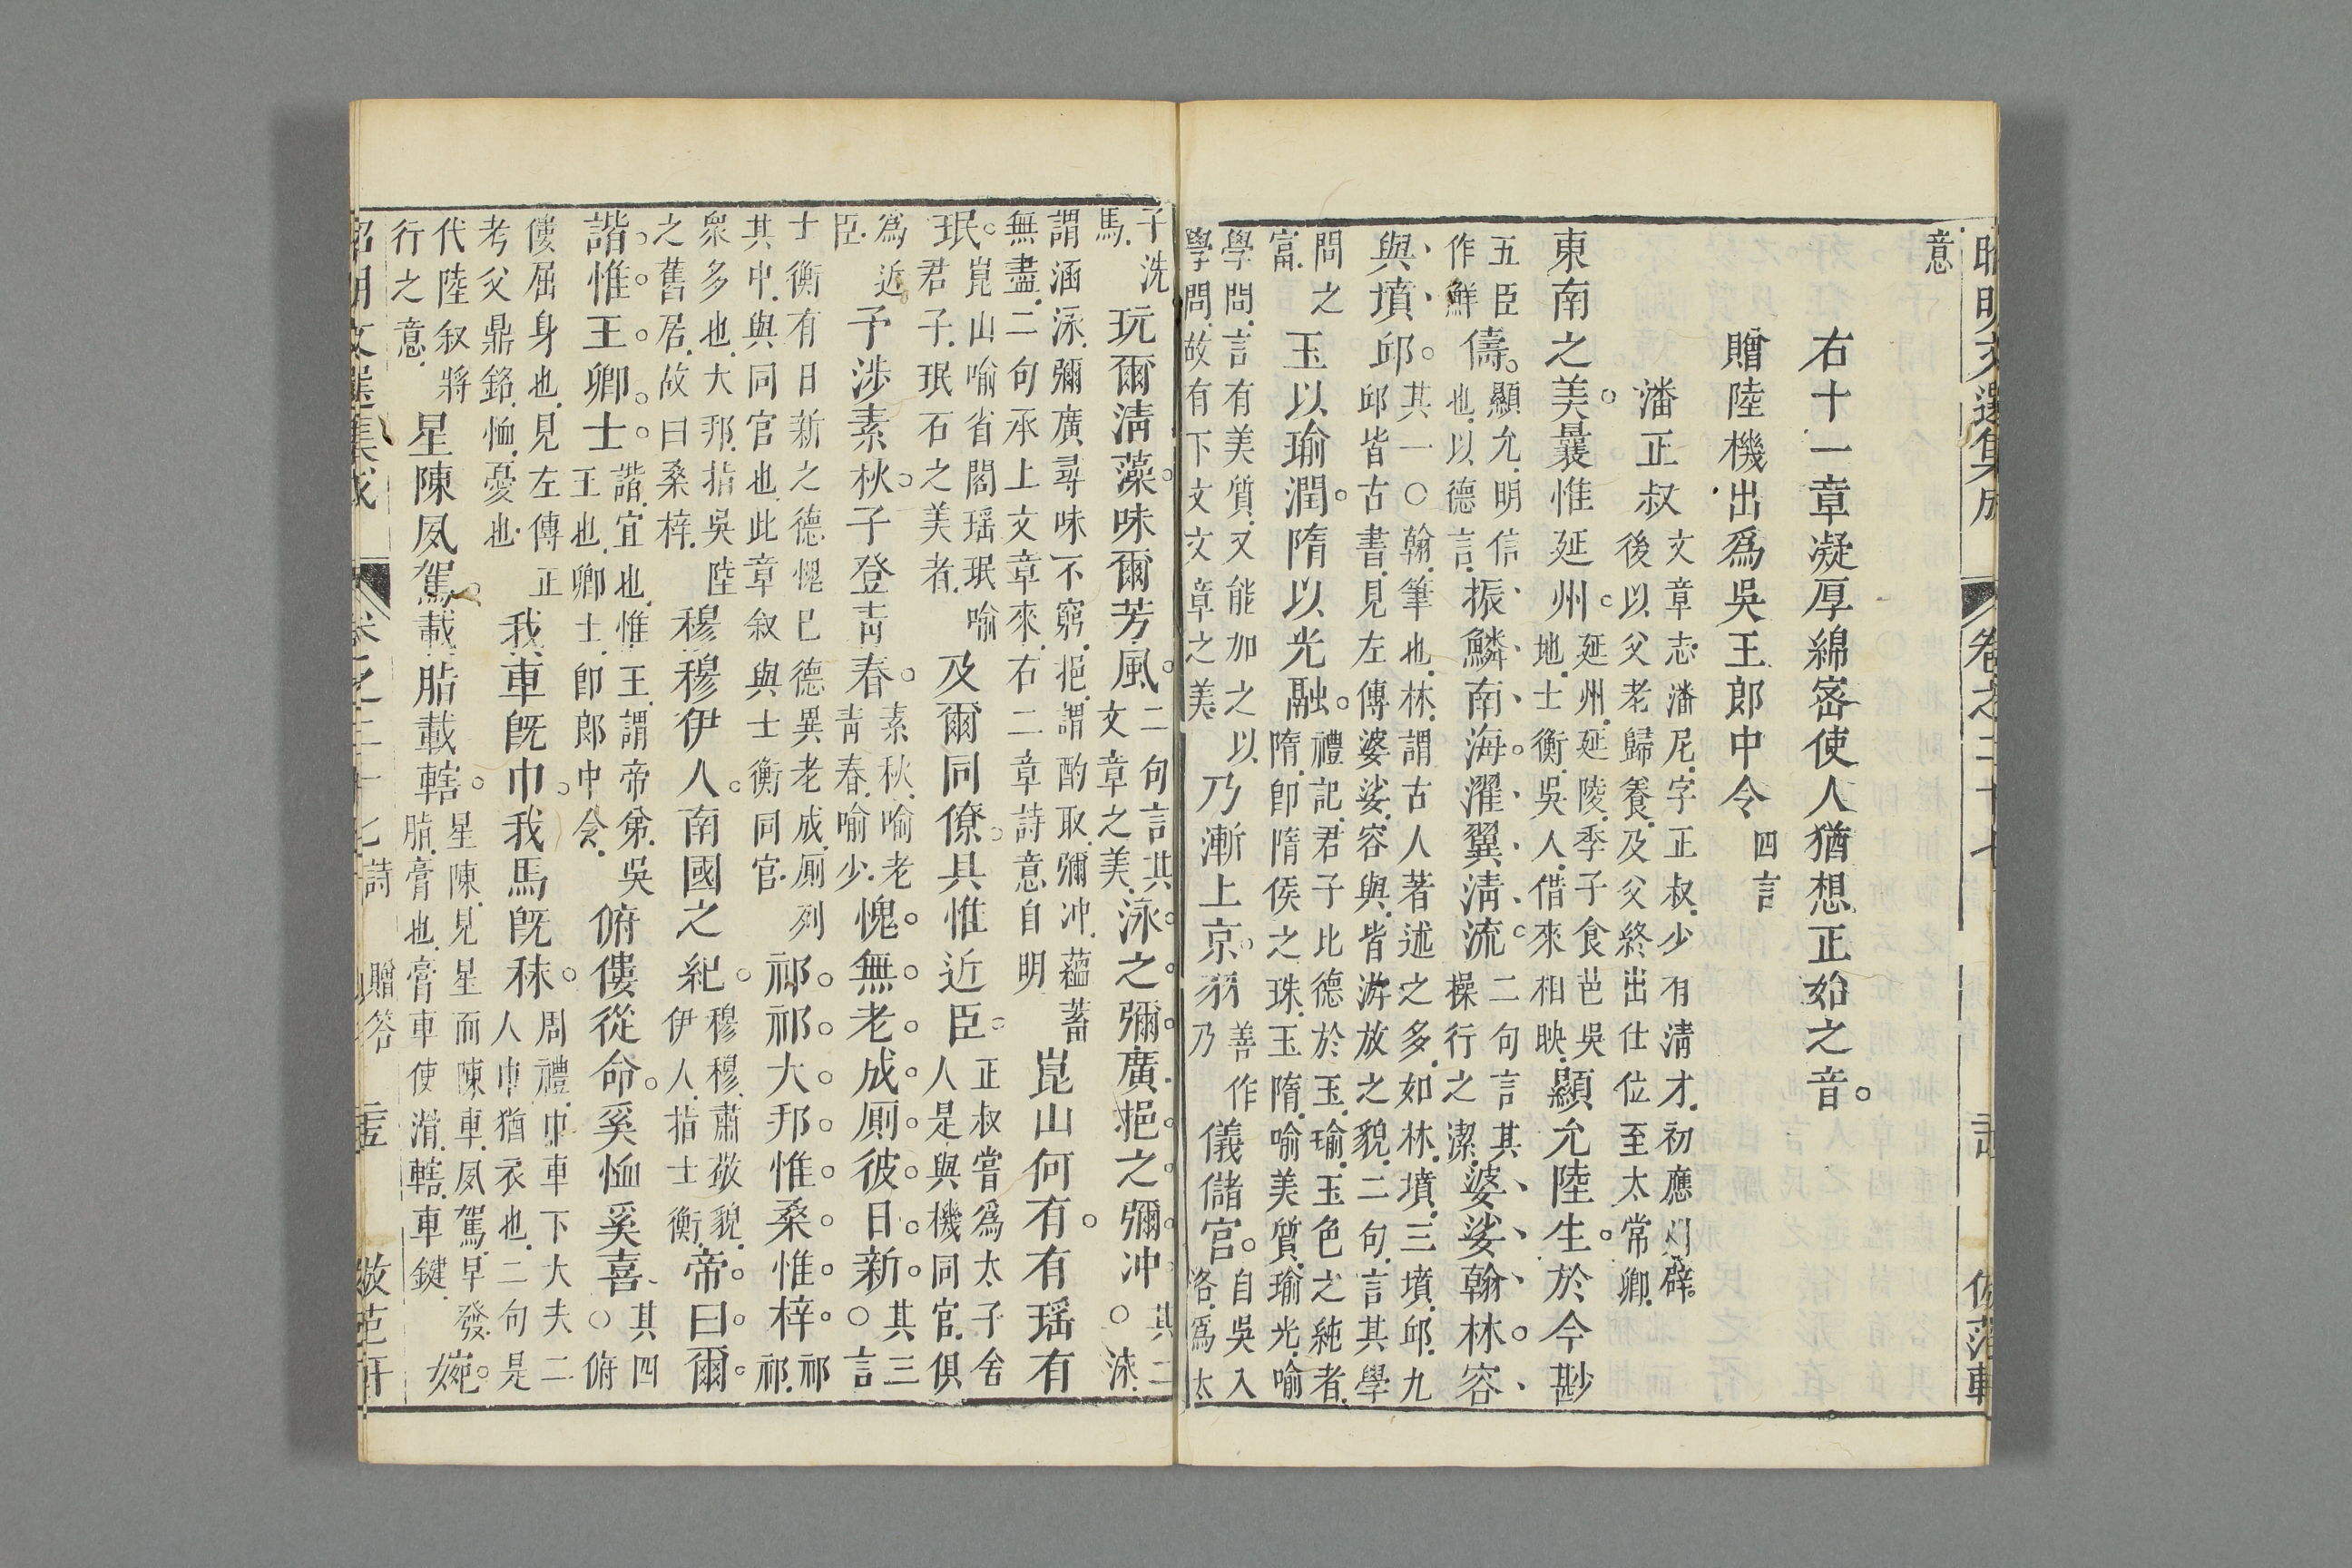 昭明文選集成 卷之三十七
意
右十一章凝厚綿密使人猶想正始之音。
贈陸機出爲吳王郎中令 四言
潘正叔 文章志潘尼字正叔少有清才初應州辟後以父老歸養及父終出仕位至太常卿
東南之美。曩惟延州。延州延陵季子食邑吳地士衡吳人借來相映顯允陸生。於今尠
五臣作鮮儔。顯允明信也以德言振鱗南海。濯翼清流。二句言其操行之潔婆娑翰林。容
與墳邱。其一○翰筆也林謂古人著述之多如林墳三墳邱九邱皆古書見左傳婆娑容與皆游放之貌二句言其學
問之富玉以瑜潤。隋以光融。禮記君子比德於玉瑜玉色之純者隋即隋侯之珠玉隋喻美質瑜光喻
學問言有美質又能加之以學問故有下文文章之美乃漸上京。羽善作乃儀儲宮。自吳入洛爲太
子洗馬玩爾清藻。味爾芳風。二句言其文章之美泳之彌廣挹之彌冲其二○泳
謂涵泳彌廣尋味不窮挹謂酌取彌冲蘊蓄無盡二句承上文章來右二章詩意自明崑山何有。有瑶有
珉。崑山喻省閣瑶珉喻君子珉石之美者及爾同僚。具惟近臣。正叔嘗爲太子舍人是與機同官俱
爲近臣予涉素秋。子登青春。素秋喻老青春喻少愧無老成厠彼日新。其三○言
士衡有日新之德愧已德異老成厠列其中與同官也此章叙與士衡同官祁祁大邦惟桑惟梓。祁祁
衆多也大邦指吳陸之舊居故曰桑梓穆穆伊人。南國之紀。穆穆肅敬貌伊人指士衡帝曰爾
諧惟王卿士。諧宜也惟王謂帝弟吳王也卿士即郎中令俯僂從命。奚恤奚喜其四○俯
僂屈身也見左傳正考父鼎銘恤憂也我車旣巾。我馬旣秣。周禮巾車下大夫二人巾猶衣也二句是
代陸叙將行之意星陳夙駕。載脂載轄。星陳見星而陳車夙駕早發脂膏也膏車使滑轄車鍵婉。
昭明文選集成 卷之三十七 詩 贈答